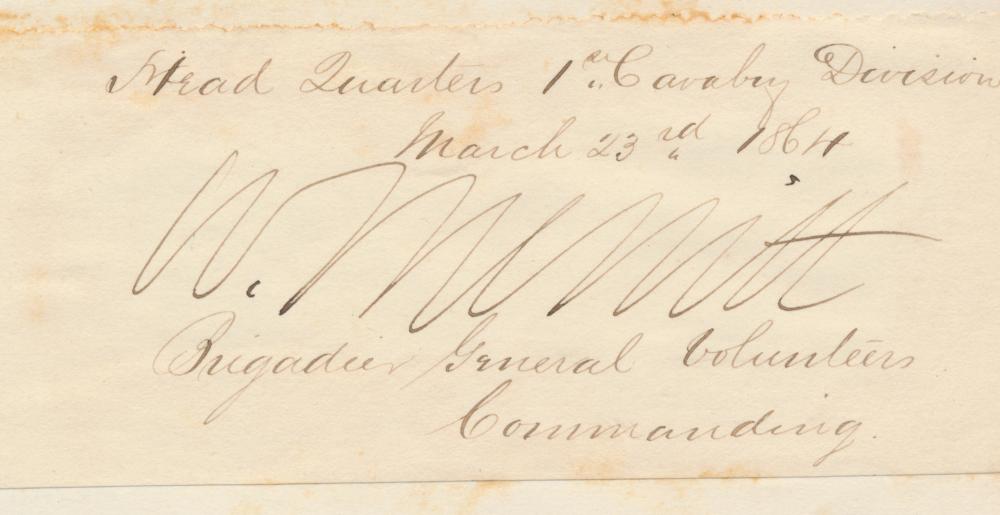 Head Quarters 1st Cavalry Division
March 23rd 1864
W. Merritt
Brigadier General Volunteers
Commanding.